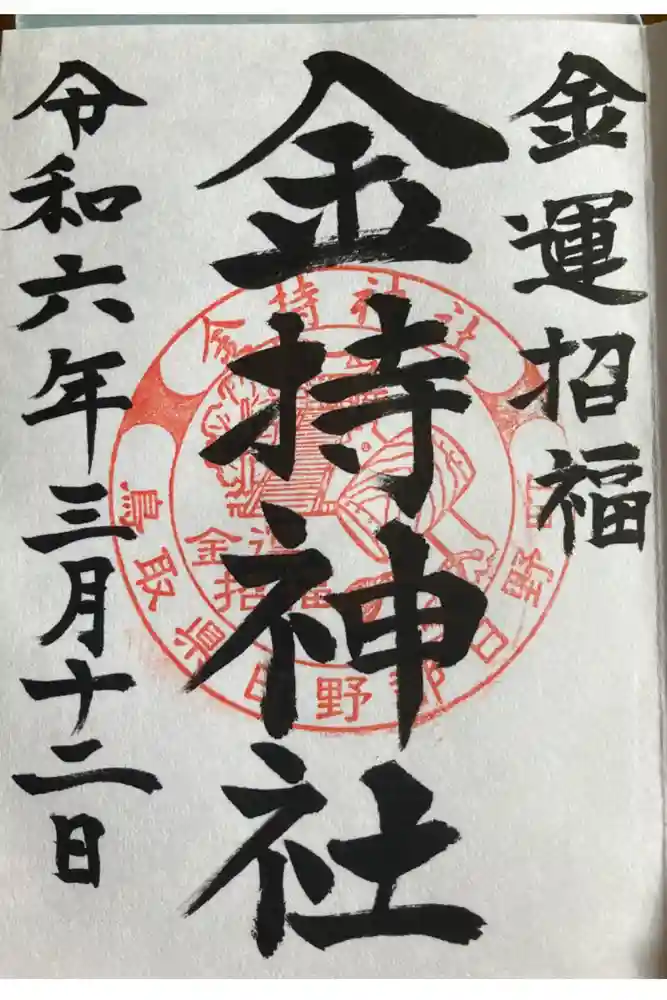 金運招福
金持神社
令和六年三月十二日
金持神社
鳥取県日野郡日野町
金運
招福